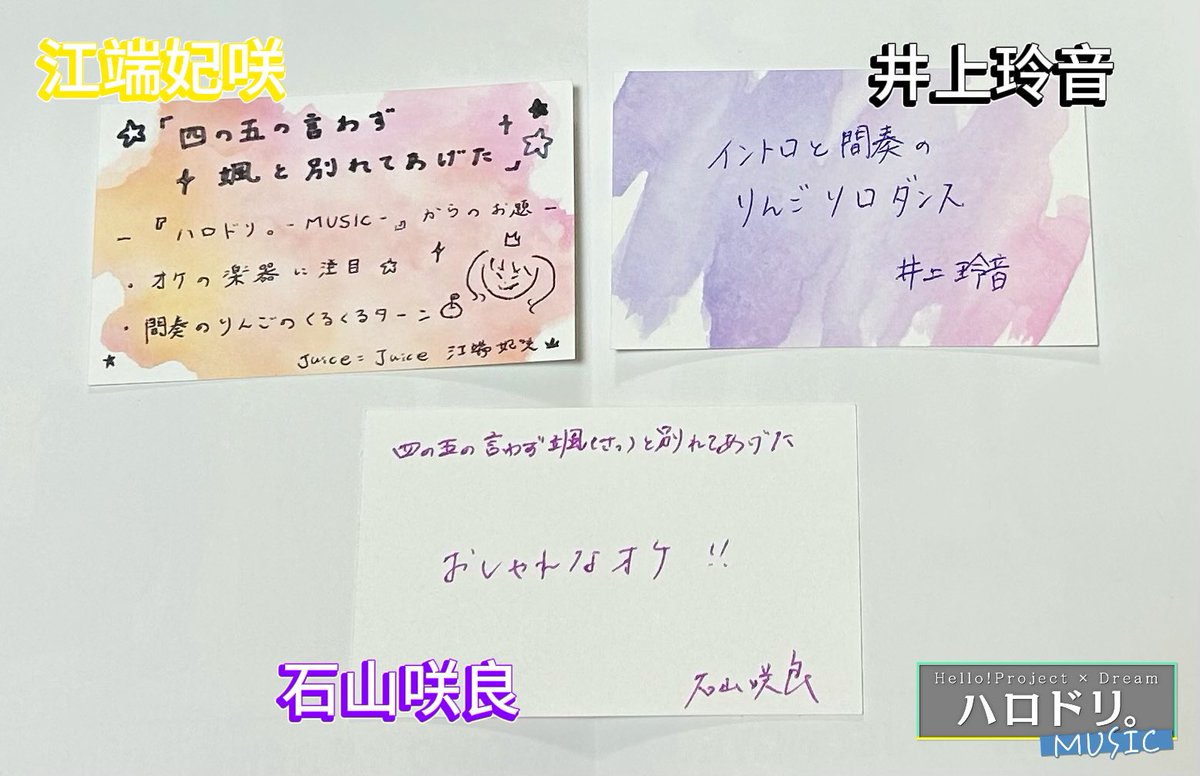 江端妃咲
「四の五の言わず
颯と別れてあげた」
-『ハロドリ。-MUSIC-』からのお題-
・オケの楽器に注目☆
・間奏のりんごのくるくるターン
Juice=Juice 江端妃咲
井上玲音
イントロと間奏の
りんごソロダンス
井上玲音
四の五の言わず颯(さっ)と別れてあげた
おしゃれなオケ!!
石山咲良
石山咲良
Hello!Project × Dream
ハロドリ。
MUSIC